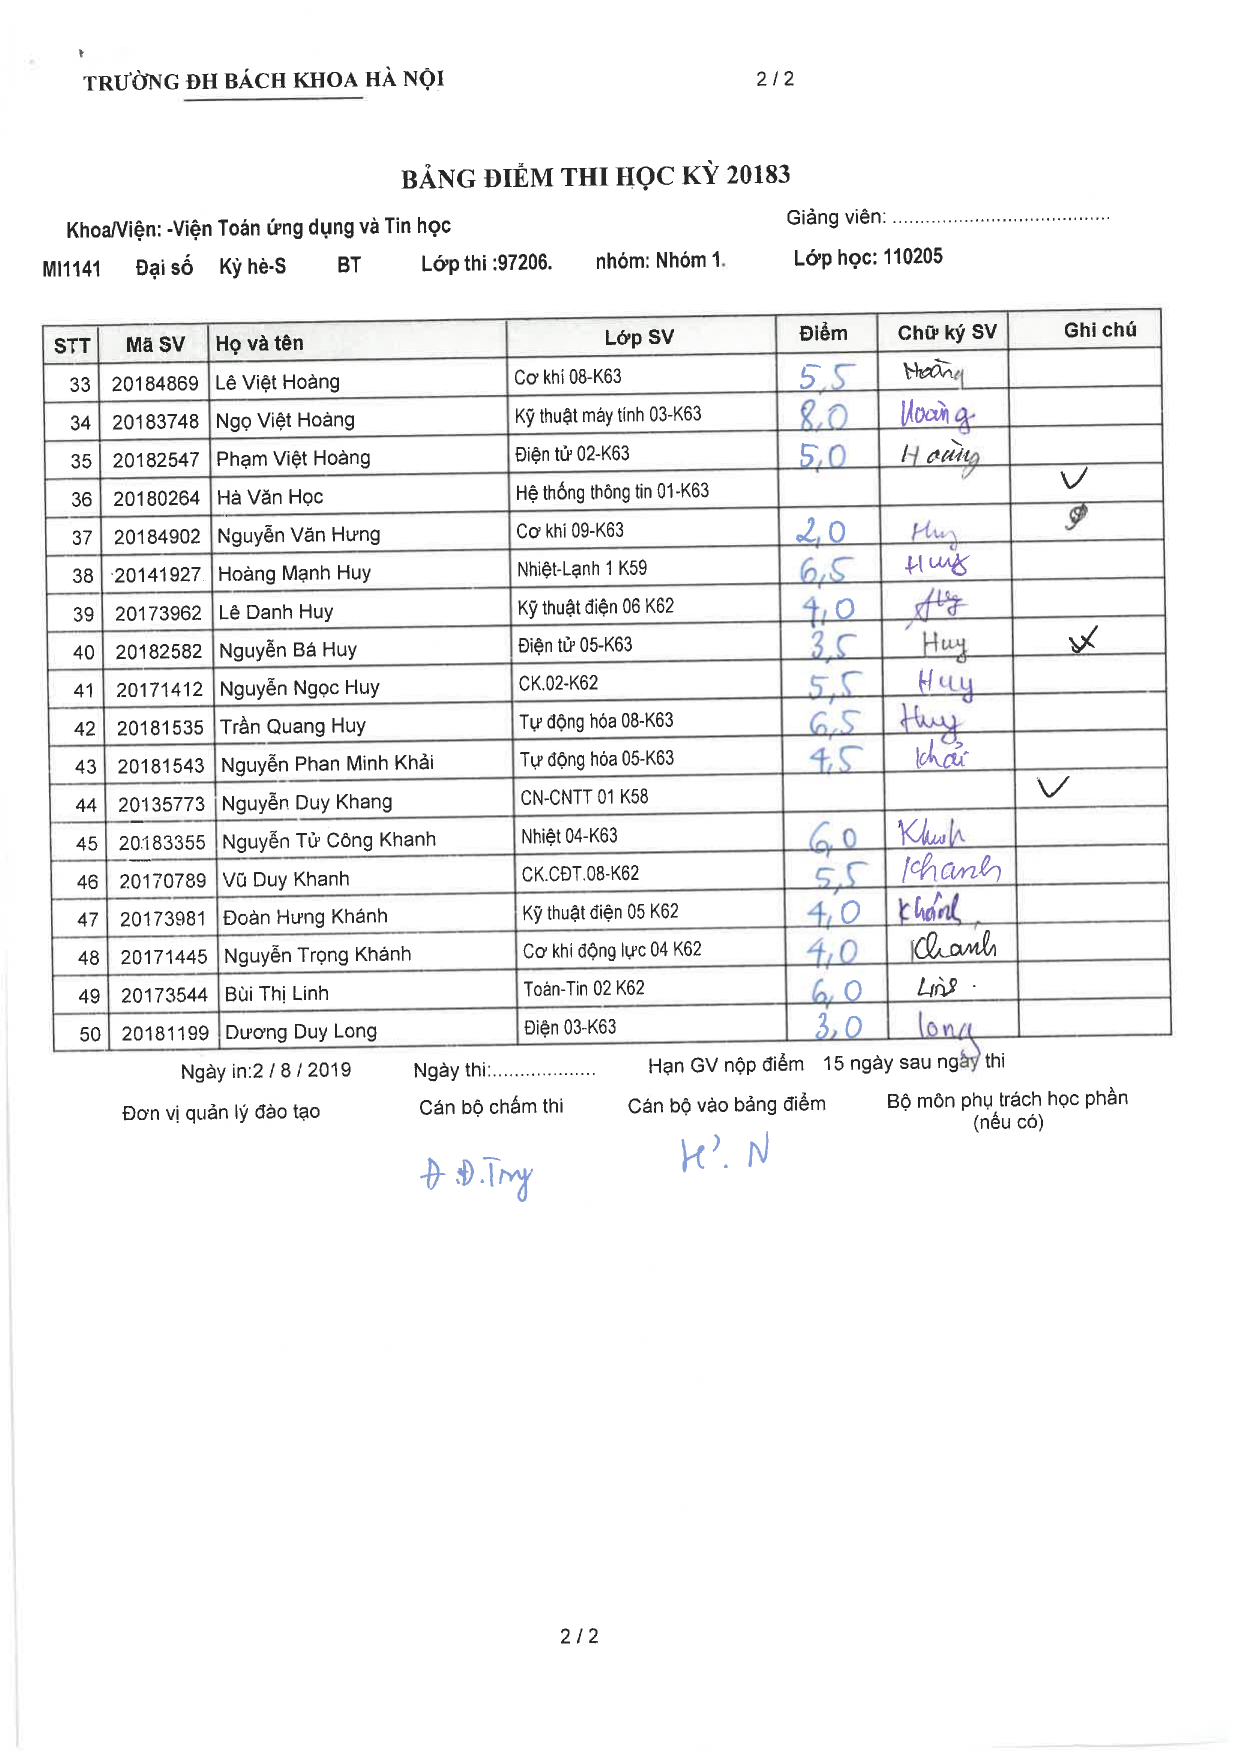 TRƯỜNG ĐH BÁCH KHOA HÀ NỘI 2 / 2
BẢNG ĐIỂM THI HỌC KỲ 20183
Khoa/Viện: -Viện Toán ứng dụng và Tin học Giảng viên: .......................................
MI1141 Đại số Kỳ hè-S BT Lớp thi :97206. nhóm: Nhóm 1. Lớp học: 110205
STT Mã SV Họ và tên Lớp SV Điểm Chữ ký SV Ghi chú
33 20184869 Lê Việt Hoàng Cơ khí 08-K63 5,5 Hoàng
34 20183748 Ngọ Việt Hoàng Kỹ thuật máy tính 03-K63 8,0 Hoàng
35 20182547 Phạm Việt Hoàng Điện tử 02-K63 5,0 Hoàng
36 20180264 Hà Văn Học Hệ thống thông tin 01-K63
37 20184902 Nguyễn Văn Hưng Cơ khí 09-K63 2,0
38 20141927 Hoàng Mạnh Huy Nhiệt-Lạnh 1 K59 6,5
39 20173962 Lê Danh Huy Kỹ thuật điện 06 K62 4,0
40 20182582 Nguyễn Bá Huy Điện tử 05-K63 3,5 Huy
41 20171412 Nguyễn Ngọc Huy CK.02-K62 5,5 Huy
42 20181535 Trần Quang Huy Tự động hóa 08-K63 6,5 Huy
43 20181543 Nguyễn Phan Minh Khải Tự động hóa 05-K63 4,5 Khải
44 20135773 Nguyễn Duy Khang CN-CNTT 01 K58
45 20183355 Nguyễn Tử Công Khanh Nhiệt 04-K63 6,0 Khanh
46 20170789 Vũ Duy Khanh CK.CĐT.08-K62 5,5 Khanh
47 20173981 Đoàn Hưng Khánh Kỹ thuật điện 05 K62 4,0 Khánh
48 20171445 Nguyễn Trọng Khánh Cơ khí động lực 04 K62 4,0 Khanh
49 20173544 Bùi Thị Linh Toán-Tin 02 K62 6,0
50 20181199 Dương Duy Long Điện 03-K63 3,0 long
Ngày in:2 / 8 / 2019 Ngày thi:................... Hạn GV nộp điểm 15 ngày sau ngày thi
Đơn vị quản lý đào tạo Cán bộ chấm thi Cán bộ vào bảng điểm Bộ môn phụ trách học phần
(nếu có)
2 / 2